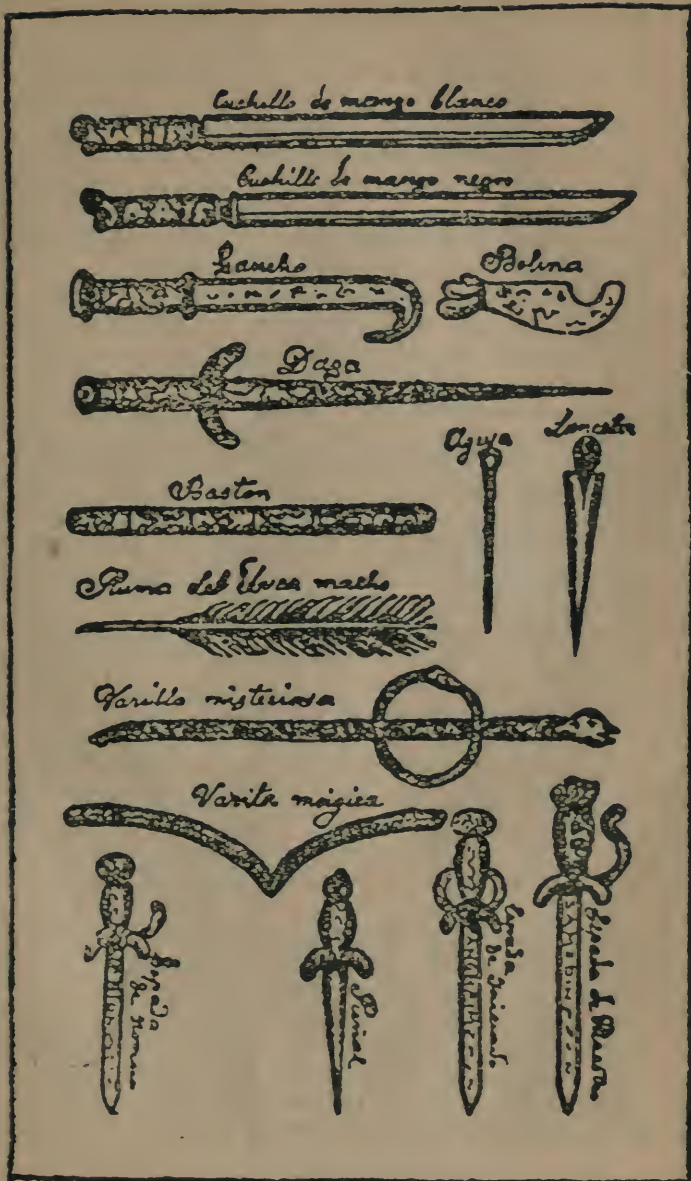 Cuchillo de mango blanco
Cuchillo de mango negro
Gancho
Bolina
Daga
Aguja
Lanceta
Baston
Pluma del macho
Varilla misteriosa
Varita mágica
Espada
de
Puñal
Espada
de Iniciado
Espada de